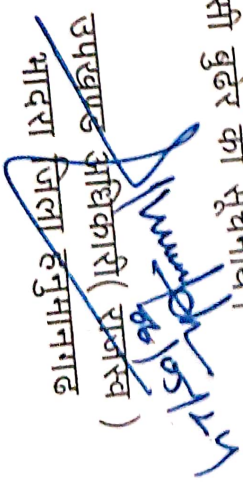 बुढेर को सूचनार्थ
उपखण्ड अधिकारी( राजस्व )
भादरा जिला हनुमानगढ